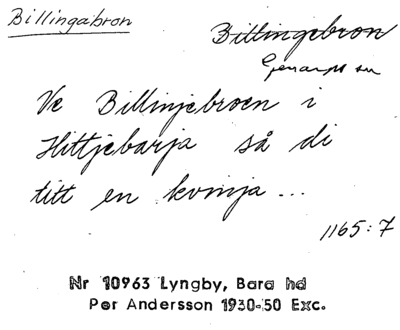 Billingabron
Billingebron
Genarps sn
Ve Billinjebroen i
Hittjebarja så di
titt en kvinja ...
1165:7
Nr 10963 Lyngby, Bara hd
Per Andersson 1930-50 Exc.